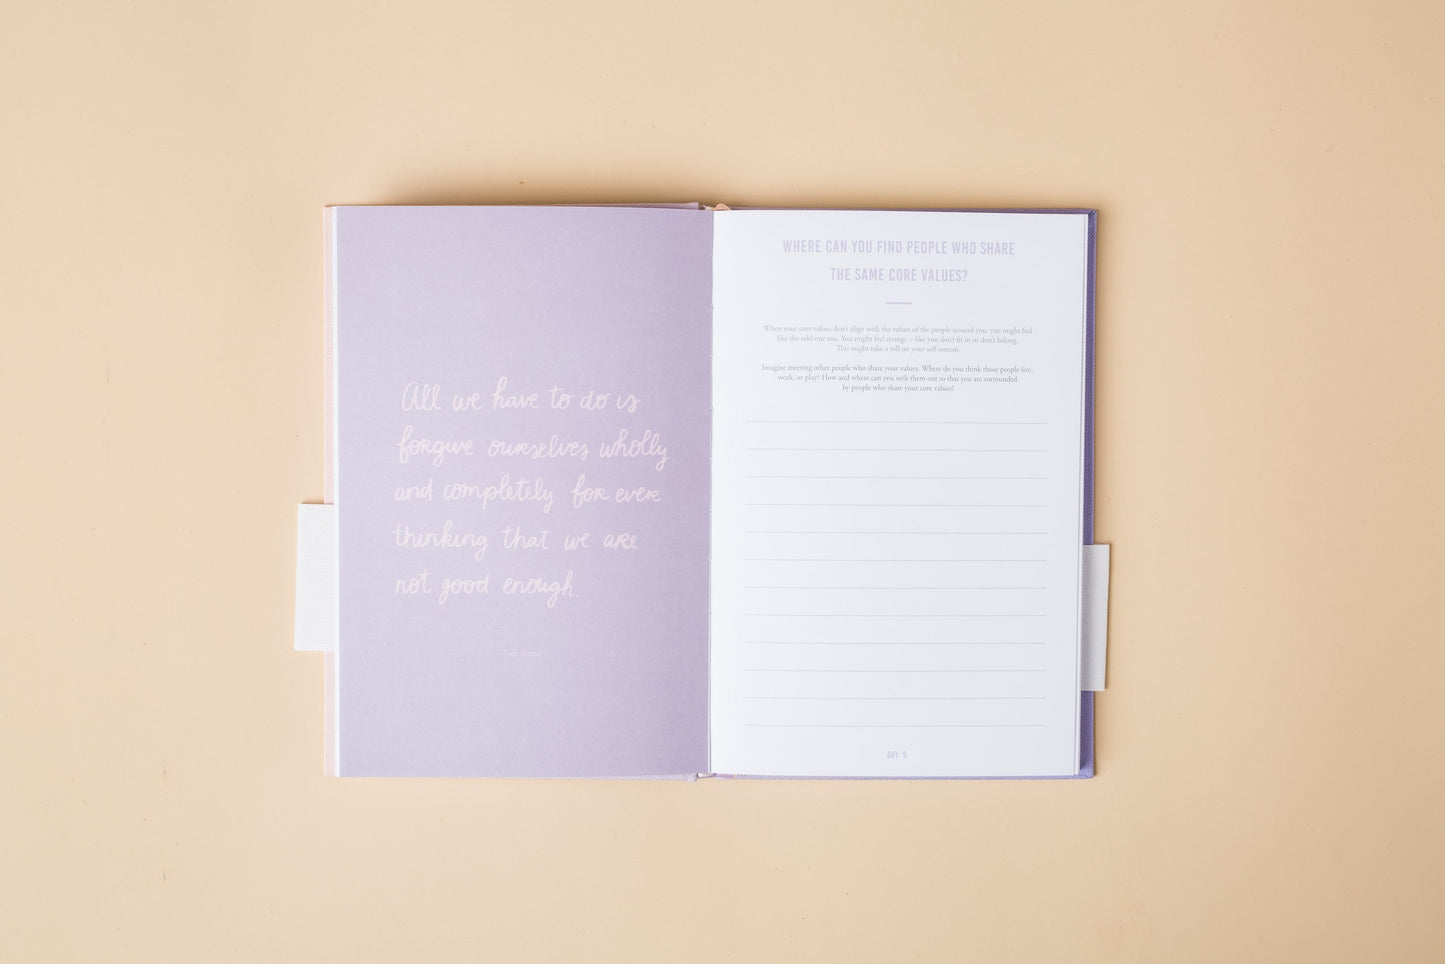 All we have to do is
forgive ourselves wholly
and completely for ever
thinking that we are
not good enough
Jodi Aman
WHERE CAN YOU FIND PEOPLE WHO SHARE
THE SAME CORE VALUES?
When your core values don't align with the values of the people around you, you might feel
like the odd one out. You might feel strange – like you don't fit in or don't belong.
This might take a toll on your self-esteem.
Imagine meeting other people who share your values. Where do you think those people live,
work, or play? How and where can you seek them out so that you are surrounded
by people who share your core values?
DAY 9